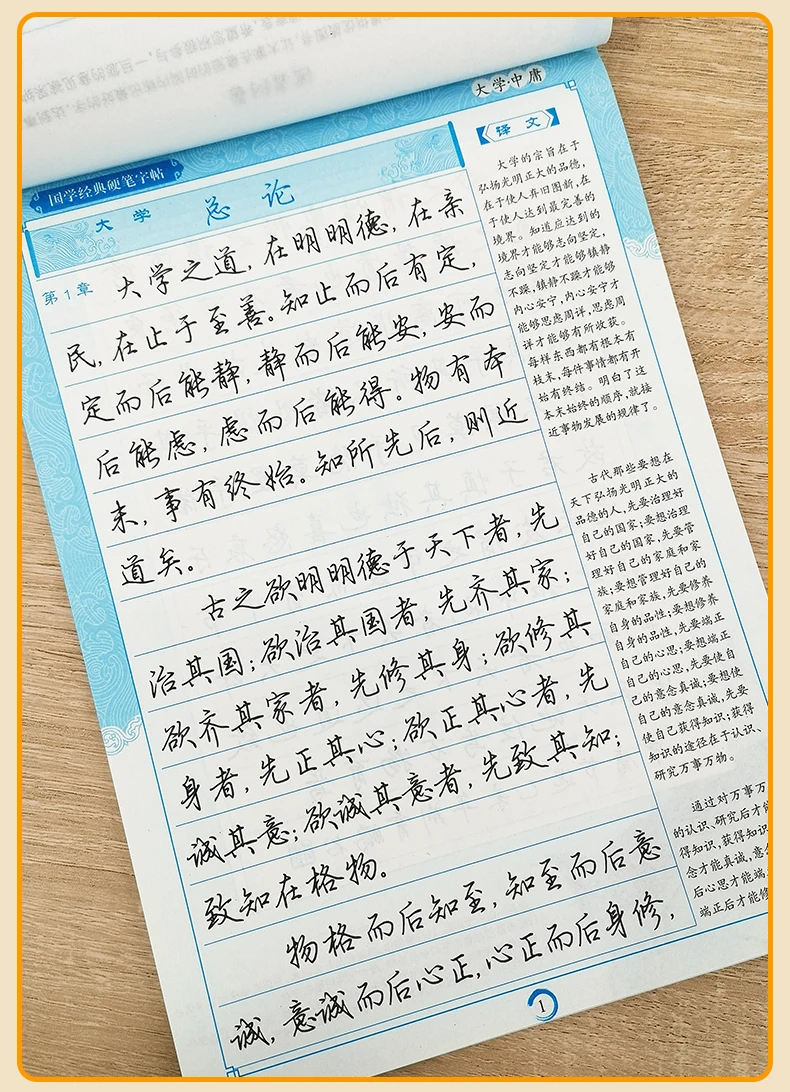 大学·中庸
国学经典硬笔字帖
大学 总论
第1章
大学之道，在明明德，在亲
民，在止于至善。知止而后有定，
定而后能静，静而后能安，安而
后能虑，虑而后能得。物有本
末，事有终始。知所先后，则近
道矣。
古之欲明明德于天下者，先
治其国；欲治其国者，先齐其家；
欲齐其家者，先修其身；欲修其
身者，先正其心；欲正其心者，先
诚其意；欲诚其意者，先致其知；
致知在格物。
物格而后知至，知至而后意
诚，意诚而后心正，心正而后身修，
译文
大学的宗旨在于
弘扬光明正大的品德，
在于使人弃旧图新，在
于使人达到最完善的
境界。知道应达到的
境界才能够志向坚定，
志向坚定才能够镇静
不躁，镇静不躁才能够
内心安宁，内心安宁才
能够思虑周详，思虑周
详才能够有所收获。
每样东西都有根本有
枝末，每件事情都有开
始有终结。明白了这
本末始终的顺序，就接
近事物发展的规律了。
古代那些要想在
天下弘扬光明正大的
品德的人，先要治理好
自己的国家；要想治理
好自己的国家，先要管
理好自己的家庭和家
族；要想管理好自己的
家庭和家族，先要修养
自身的品性；要想修养
自身的品性，先要端正
自己的心思；要想端正
自己的心思，先要使自
己的意念真诚；要想使
自己的意念真诚，先要
使自己获得知识；获得
知识的途径在于认识、
研究万事万物。
通过对万事万
的认识、研究后才能
得知识，获得知识
念才能真诚，意念
后心思才能端
端正后才能修
1